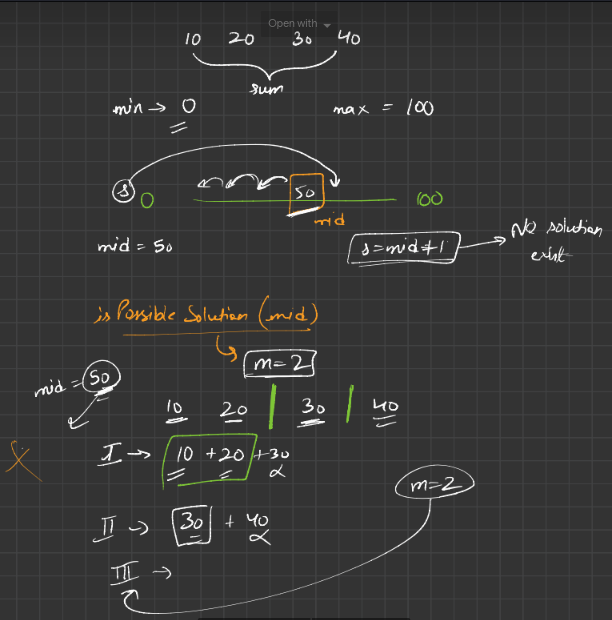 Open with
10 20 30 40
sum
min → 0
max = 100
s 0 50 100
mid
mid = 50
s = mid + 1 → No solution
exist
is Possible Solution (mid)
m = 2
mid = 50
10 20 | 30 | 40
I → 10 + 20 + 30
m = 2
II → 30 + 40
III →